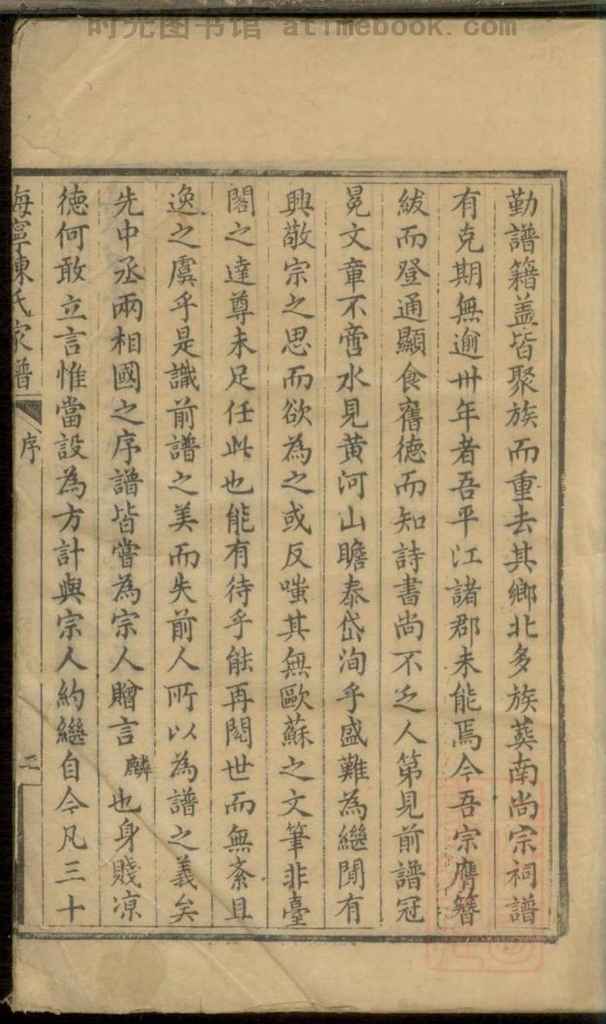 时光图书馆 atimebook.com
勤譜籍盖皆聚族而重去其鄉北多族葬南尚宗祠譜
有克期無逾卅年者吾平江諸郡未能焉今吾宗膺簪
紱而登通顯食舊德而知詩書尚不乏人第見前譜冠
冕文章不啻水見黄河山瞻泰岱洵乎盛難為繼閒有
興敬宗之思而欲為之或反嗤其無歐蘇之文筆非臺
閣之達尊未足任此也能有待乎能再閱世而無紊且
逸之虞乎是識前譜之美而失前人所以為譜之義矣
先中丞兩相國之序譜皆嘗為宗人贈言麟也身賤凉
德何敢立言惟當設為方計與宗人約繼自今凡三十
海寧陳氏家譜 序 二